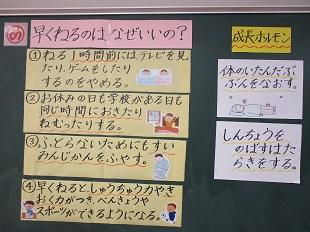 め 早くねるのはなぜいいの?
①ねる1時間前にはテレビを見
たり、ゲームをしたり
するのをやめる。
②お休みの日も学校がある日も
同じ時間におきたり
ねむったりする。
③ふとらないためにもすい
みんじかんをふやす。
④早くねると、しゅうちゅう力やき
おく力がつき、べんきょうや
スポーツができるようになる。
成長ホルモン
体のいたんだぶ
ぶんをなおす。
しんちょうを
のばすはた
らきをする。